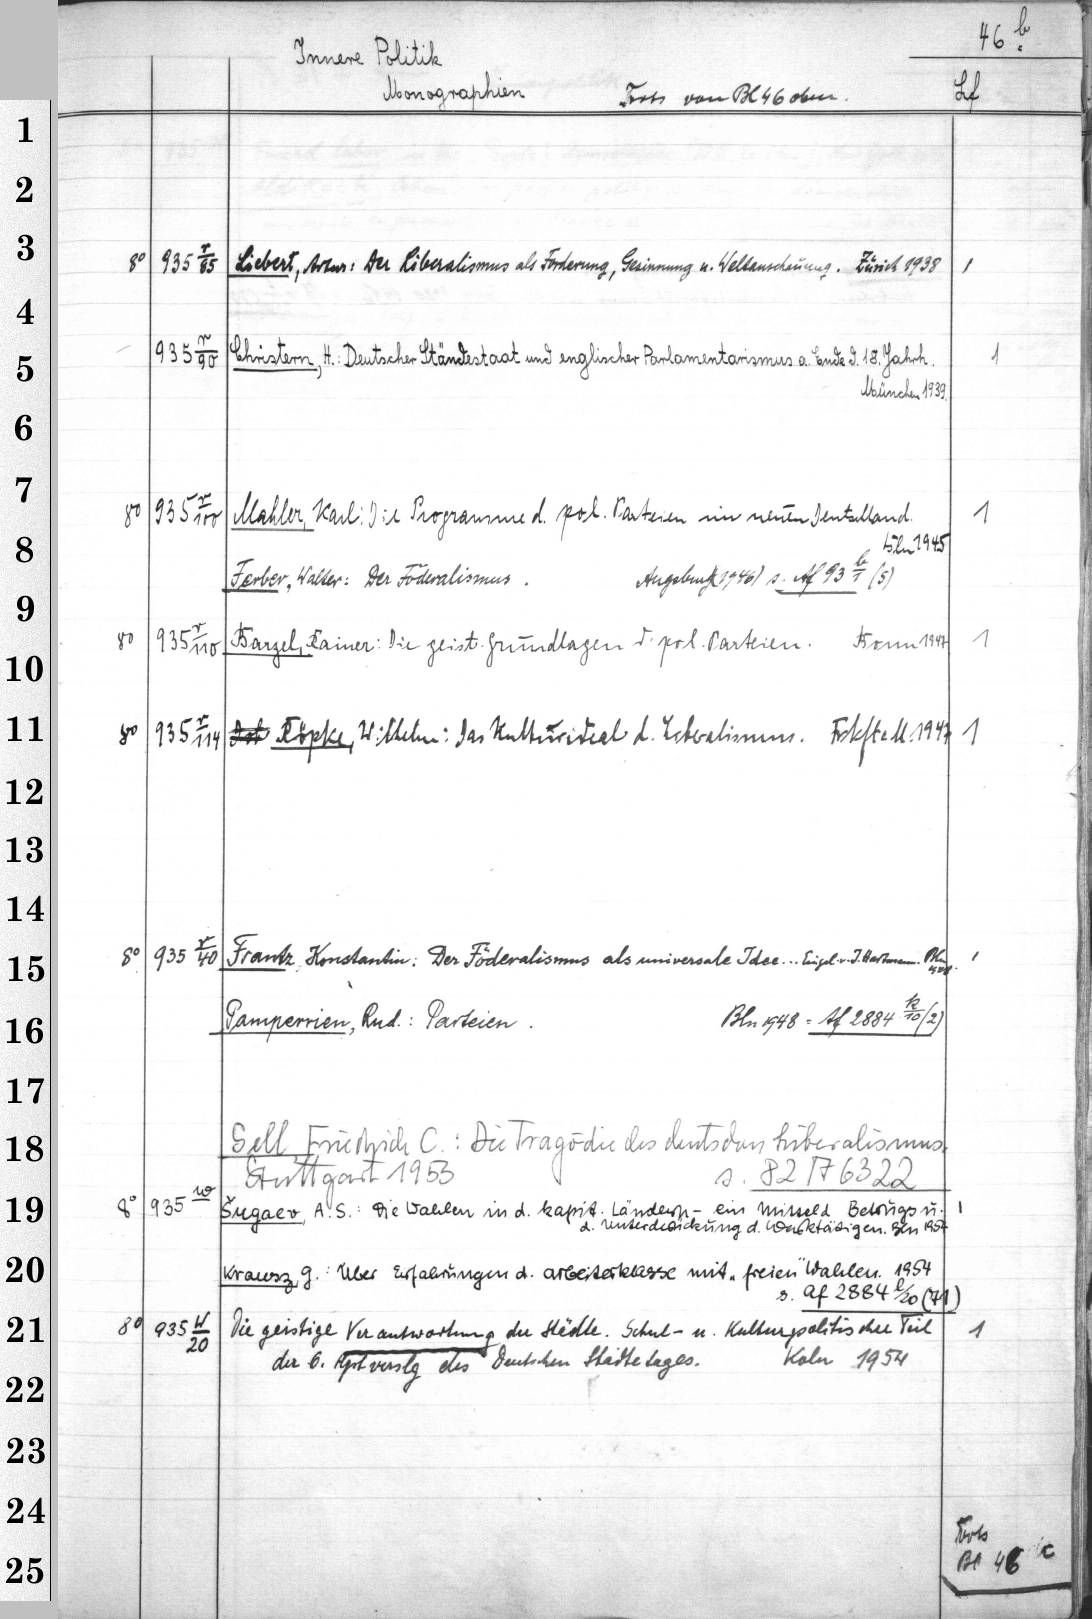 46 b
Innere Politik
Monographien Forts von Bl 46 oben. Lf
1
2
3
8° 935 r/85 Liebert, Artur: Der Liberalismus als Forderung, Gesinnung u. Weltanschauung. Zürich 1938 1
4
935 r/90 Christern, H.: Deutscher Ständestaat und englischer Parlamentarismus a. Ende d. 18. Jahrh. 1
5
München 1939.
6
7
8° 935 r/100 Mahler, Karl: Die Programme d. pol. Parteien im neuen Deutschland. 1
Bln 1945
8
Ferber, Walter: Der Föderalismus. Augsburg (1946) s. Af 93 b/1 (5)
9
8° 935 r/110 Barzel, Rainer: Die geist. Grundlagen d. pol. Parteien. Bonn 1947 1
10
8° 935 r/114 Röpke, Wilhelm: Das Kulturideal d. Liberalismus. 1947 1
11
12
13
14
8° 935 r/40 Frantz, Konstantin: Der Föderalismus als universale Idee... Eingel. v. I. Hartmann. Bln 1
15
Pamperrien, Rud.: Parteien. Bln 1948 = Af 2884 k/10 (2)
16
17
Sell Friedrich C.: Die Tragödie des deutschen Liberalismus.
18
Stuttgart 1953 s. 82 176322
8° 935 w Šugaev, A. S.: Die Wahlen in d. kapit. Ländern - ein Mittel d. Betrugs u. 1
19
d. Unterdrückung d. Werktätigen. Bln 1954
Krausz, G.: Über Erfahrungen d. Arbeiterklasse mit "freien" Wahlen. 1954
20
s. Af 2884 l/20 (71)
8° 935 w/20 Die geistige Verantwortung der Städte. Schul- u. Kulturpolitischer Teil 1
21
der 6. Hptverslg des Deutschen Städtetages. Köln 1954
22
23
24
Forts
25
Bl 46 c